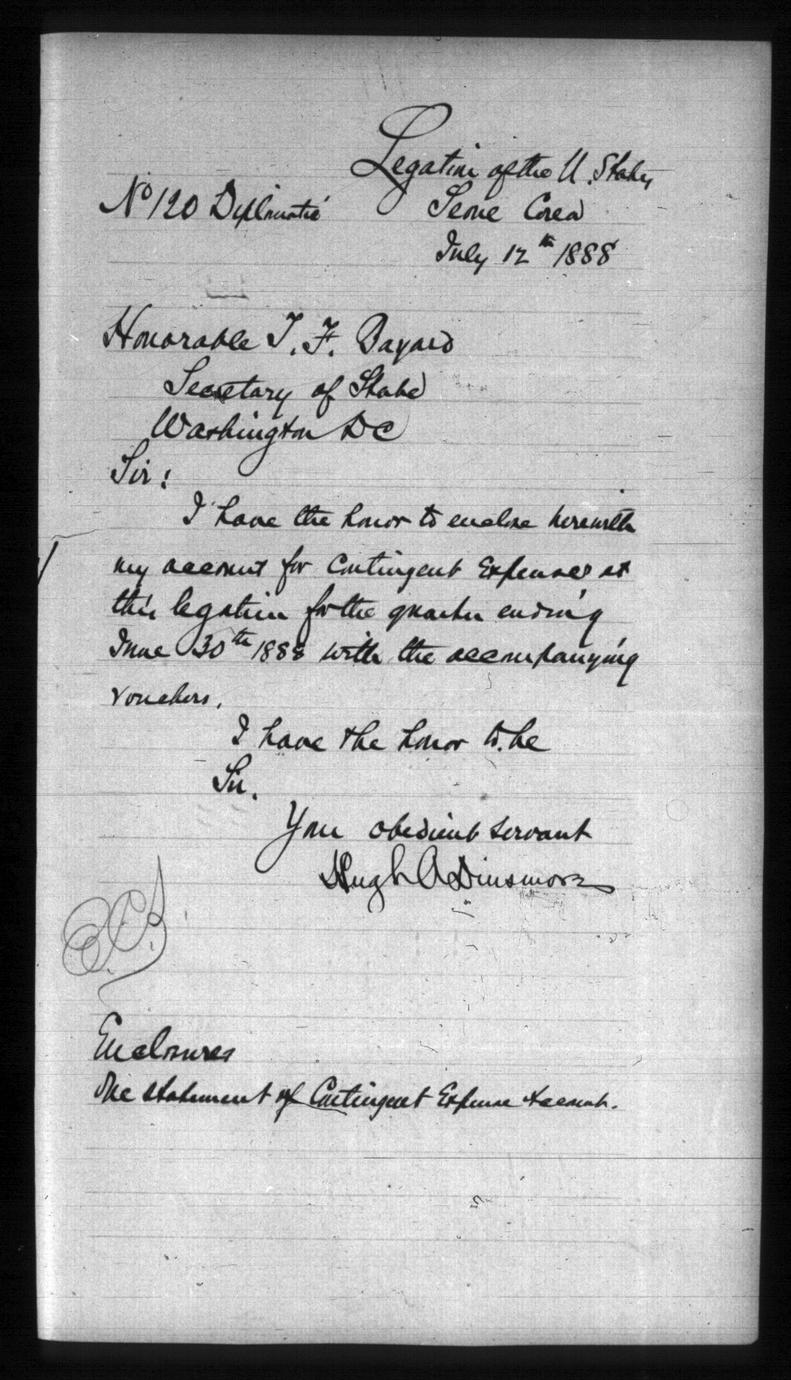 Legation of the U. States
No 120 Diplomatic
Seoul Corea
July 12th 1888
Honorable T. F. Bayard
Secretary of State
Washington DC
Sir:
I have the honor to enclose herewith
my account for Contingent Expenses at
this legation for the quarter ending
June 30th 1888 with the accompanying
vouchers.
I have the honor to be
Sir.
Your obedient servant
Hugh A Dinsmore
Enclosures
One statement of Contingent Expense Account.